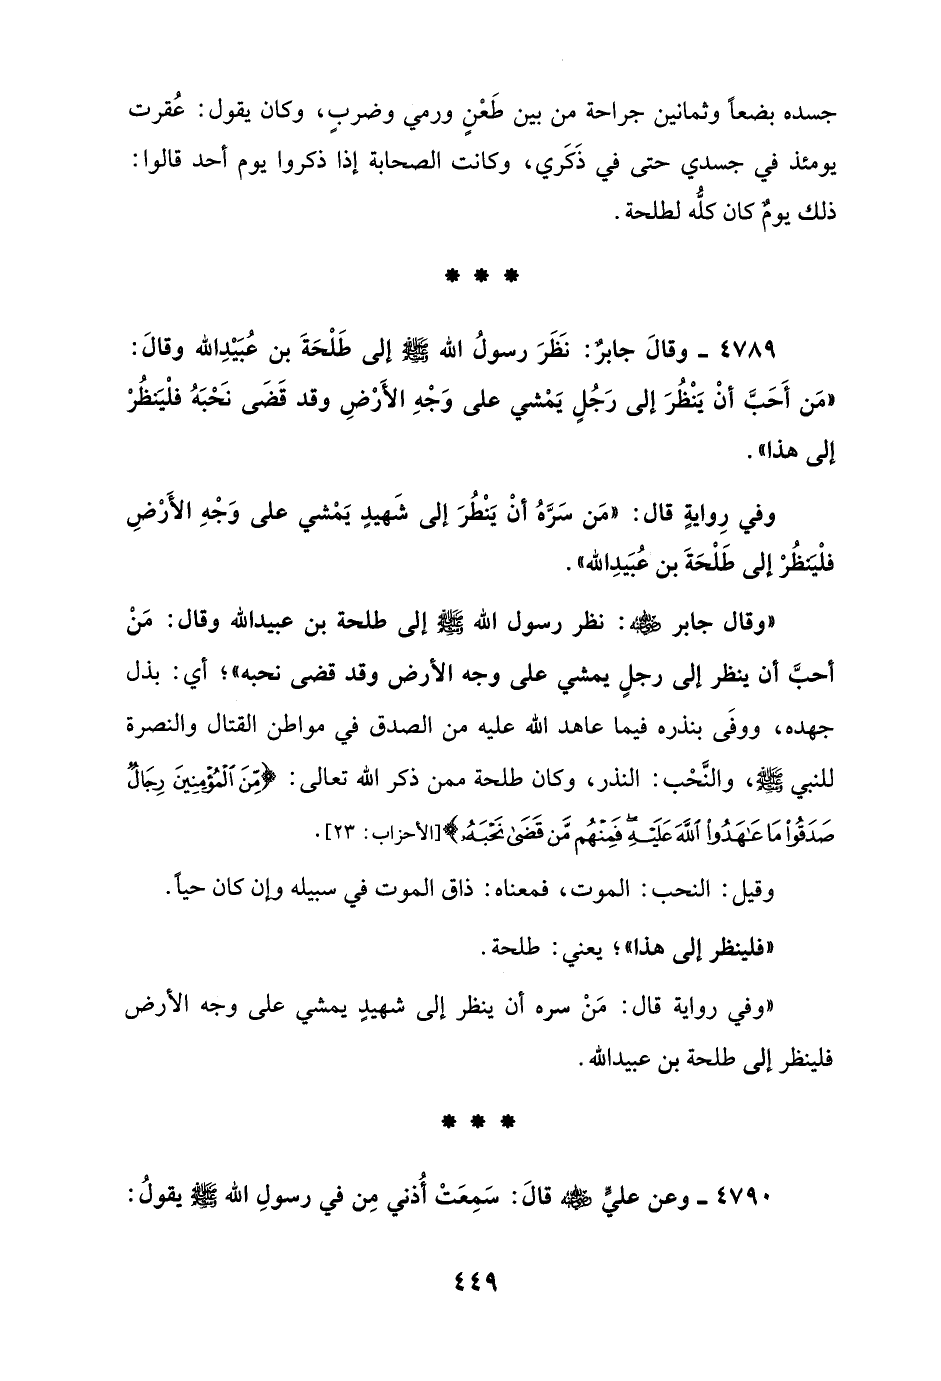 جسده بضعاً وثمانين جراحة من بين طَعْنٍ ورمي وضربٍ، وكان يقول: عُقرت
يومئذ في جسدي حتى في ذَكَري، وكانت الصحابة إذا ذكروا يوم أحد قالوا:
ذلك يومٌ كان كلُّه لطلحة.
* * *
٤٧٨٩ ـ وقالَ جابرٌ: نَظَرَ رسولُ الله ﷺ إلى طَلْحَةَ بن عُبَيْدِالله وقالَ:
«مَن أَحَبَّ أنْ يَنْظُرَ إلى رَجُلٍ يَمْشي على وَجْهِ الأَرْضِ وقد قَضَى نَحْبَهُ فلْيَنظُرْ
إلى هذا».
وفي رِوايةٍ قال: «مَن سَرَّهُ أنْ يَنْظُرَ إلى شَهيدٍ يَمْشي على وَجْهِ الأَرْضِ
فلْيَنظُرْ إلى طَلْحَةَ بن عُبَيدِالله».
«وقال جابر ﵁: نظر رسول الله ﷺ إلى طلحة بن عبيدالله وقال: مَنْ
أحبَّ أن ينظر إلى رجلٍ يمشي على وجه الأرض وقد قضى نحبه»؛ أي: بذل
جهده، ووفَى بنذره فيما عاهد الله عليه من الصدق في مواطن القتال والنصرة
للنبي ﷺ، والنَّحْب: النذر، وكان طلحة ممن ذكر الله تعالى: ﴿مِّنَ ٱلْمُؤْمِنِينَ رِجَالٌ
صَدَقُوا۟ مَا عَـٰهَدُوا۟ ٱللَّهَ عَلَيْهِ ۖ فَمِنْهُم مَّن قَضَىٰ نَحْبَهُۥ﴾[الأحزاب: ٢٣].
وقيل: النحب: الموت، فمعناه: ذاق الموت في سبيله وإن كان حياً.
«فلينظر إلى هذا»؛ يعني: طلحة.
«وفي رواية قال: مَنْ سره أن ينظر إلى شهيدٍ يمشي على وجه الأرض
فلينظر إلى طلحة بن عبيدالله.
* * *
٤٧٩٠ ـ وعن عليٍّ ﵁ قالَ: سَمِعَتْ أُذني مِن في رسولِ الله ﷺ يقولُ:
٤٤٩